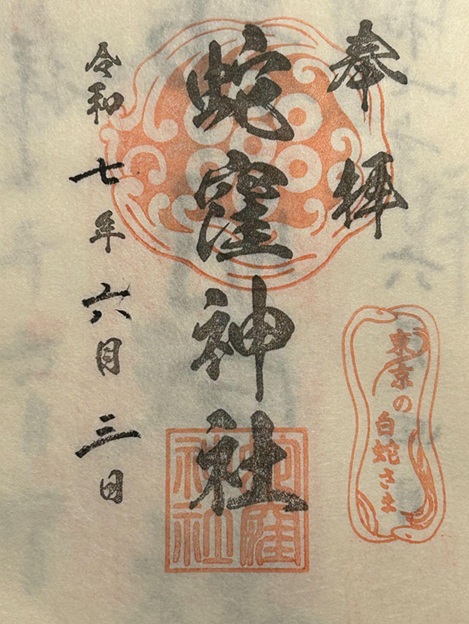 奉拝
蛇窪神社
令和七年六月三日
東京の白蛇さま
蛇窪神社